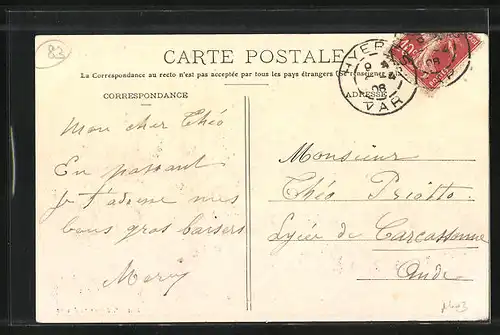 83
CARTE POSTALE
La Correspondance au recto n'est pas acceptée par tous les pays étrangers (Se renseigner
CORRESPONDANCE
ADRESSE
HYERES
9 4
08
VAR
Mon cher Théo
En passant
Je t'adresse mes
bons gros baisers
Monsieur
Théo Priotto
Lycée de Carcassonne
Aude